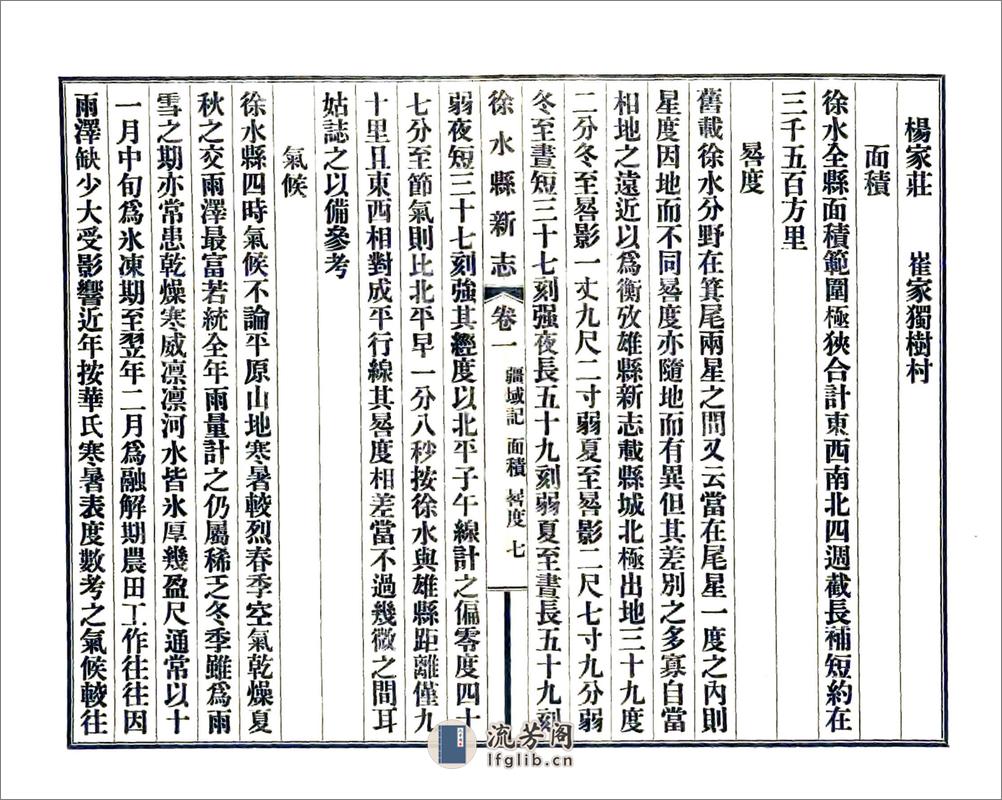 楊家莊　崔家獨樹村
面積
徐水全縣面積範圍極狹合計東西南北四週截長補短約在
三千五百方里
晷度
舊載徐水分野在箕尾兩星之間又云當在尾星一度之內則
星度因地而不同晷度亦隨地而有異但其差別之多寡自當
相地之遠近以爲衡攷雄縣新志載縣城北極出地三十九度
二分冬至晷影一丈九尺二寸弱夏至晷影二尺七寸九分弱
冬至晝短三十七刻强夜長五十九刻弱夏至晝長五十九刻
徐水縣新志 卷一 疆域記 面積 晷度 七
弱夜短三十七刻強其經度以北平子午線計之偏零度四十
七分至節氣則比北平早一分八秒按徐水與雄縣距離僅九
十里且東西相對成平行線其晷度相差當不過幾微之間耳
姑誌之以備參考
氣候
徐水縣四時氣候不論平原山地寒暑較烈春季空氣乾燥夏
秋之交雨澤最富若統全年雨量計之仍屬稀乏冬季雖爲雨
雪之期亦常患乾燥寒威凛凛河水皆氷厚幾盈尺通常以十
一月中旬爲氷凍期至翌年二月爲融解期農田工作往往因
雨澤缺少大受影響近年按華氏寒暑表度數考之氣候較往
流芳阁
lfglib.cn